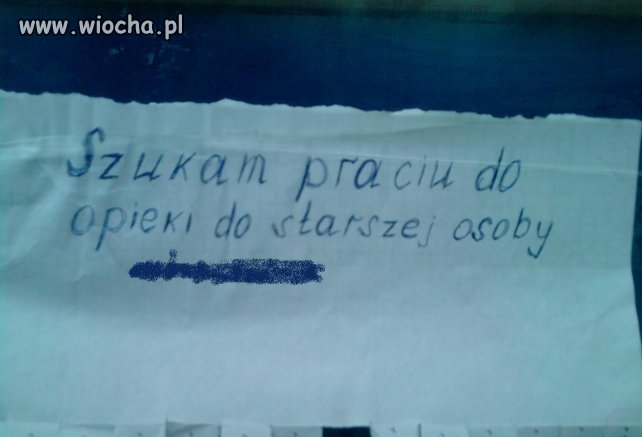 www.wiocha.pl
Szukam praciu do
opieki do starszej osoby